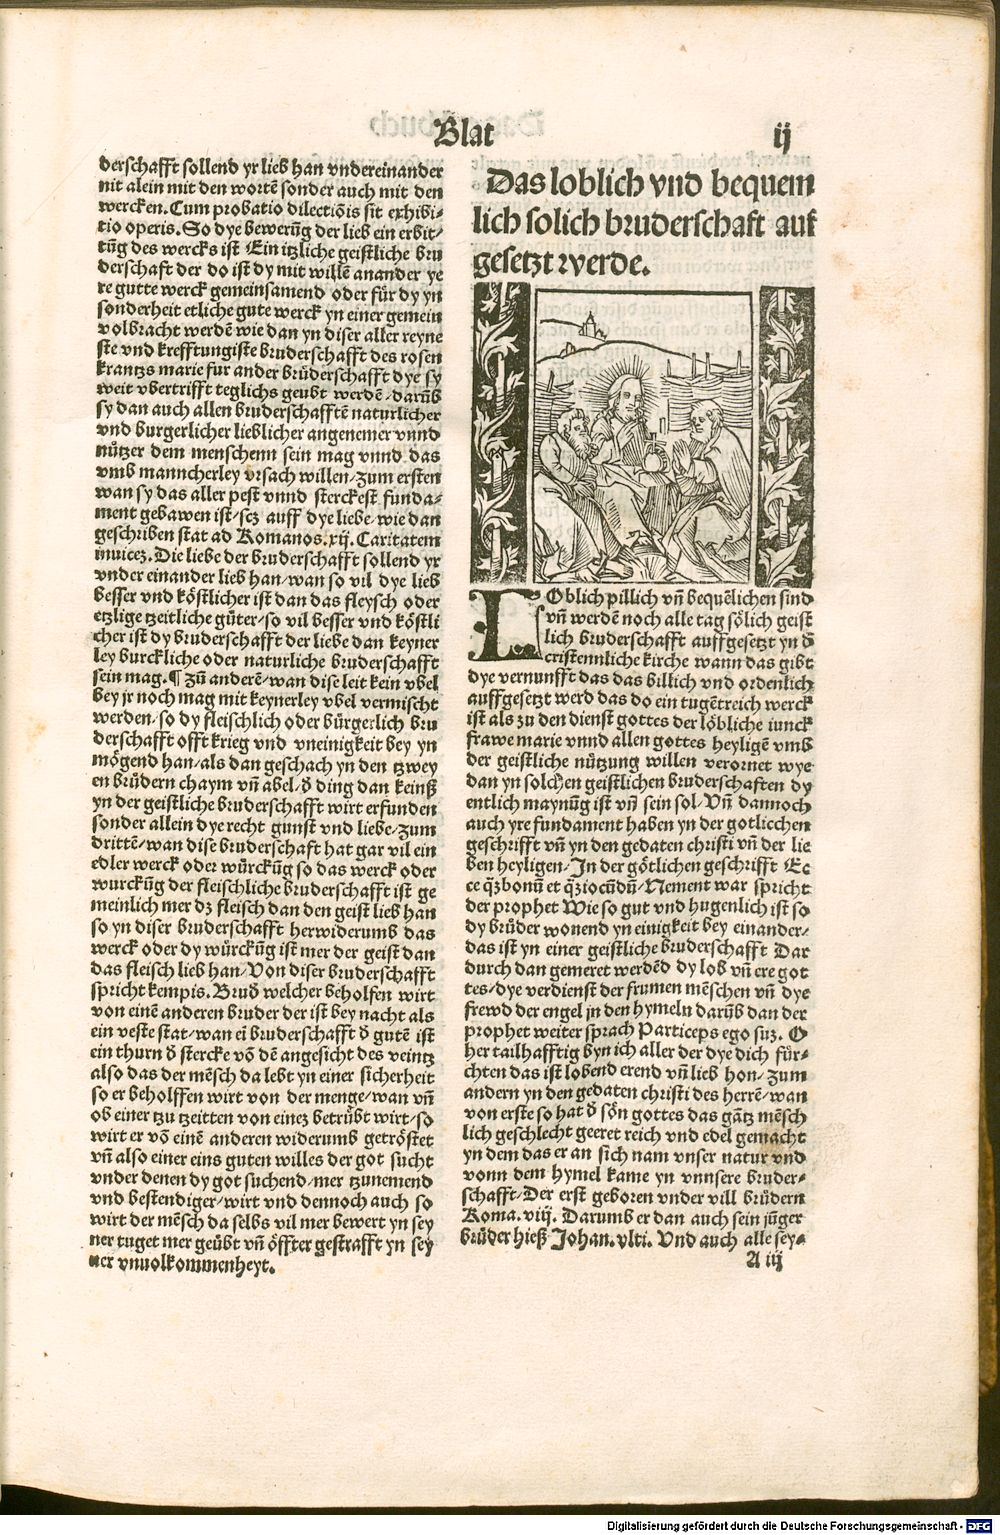 Blat ij
derschafft sollend yr lieb han vndereinander
nit alein mit den wortē sonder auch mit den
wercken. Cum probatio dilectiōis sit exhibi-
tio operis. So dye bewerūg der lieb ein erbit/
tūg des wercks ist Ein itzliche geistliche bru
derschaft der do ist dy mit willē anander ye
re gutte werck gemeinsamend oder für dy yn
sonderheit etliche gute werck yn einer gemein
volbracht werdē wie dan yn diser aller reyne
ste vnd krefftungiste bruderschafft des rosen
krantzs marie fur ander brüderschafft dye sy
weit vbertrifft teglichs geubt werdē/darūb
sy dan auch allen bruderschafftē naturlicher
vnd burgerlicher lieblicher angenemer vnnd
nützer dem menschenn sein mag vnnd das
vmb manncherley vrsach willen/zum ersten
wan sy das aller pest vnnd sterckest funda-
ment gebawen ist/scz auff dye liebe/wie dan
geschriben stat ad Romanos.xij. Caritatem
inuicez. Die liebe der bruderschafft sollend yr
vnder einander lieb han/wan so vil dye lieb
besser vnd köstlicher ist dan das fleysch oder
etzlige tzeitliche güter/so vil besser vnd köstli
cher ist dy bruderschafft der liebe dan keyner
ley burckliche oder naturliche bruderschafft
sein mag. ¶ Zū anderē/wan dise leit kein vbel
bey jr noch mag mit keynerley vbel vermischt
werden/so dy fleischlich oder bürgerlich bru
derschafft offt krieg vnd vneinigkeit bey yn
mögend han/als dan geschach yn den tzwey
en brüdern chaym vñ abel/d̄ ding dan keinß
yn der geistliche bruderschafft wirt erfunden
sonder allein dye recht gunst vnd liebe/zum
drittē/wan dise bruderschaft hat gar vil ein
edler werck oder würckūg so das werck oder
wurckūg der fleischliche bruderschafft ist ge
meinlich mer dz fleisch dan den geist lieb han
so yn diser bruderschafft herwiderumb das
werck oder dy würckūg ist mer der geist dan
das fleisch lieb han/Von diser bruderschafft
spricht kempis. Brud̄ welcher beholfen wirt
von einē anderen bruder der ist bey nacht als
ein veste stat/wan ei bruderschafft d̄ gutē ist
ein thurn d̄ stercke vō dē angesicht des veintz
also das der mēsch da lebt yn einer sicherheit
so er beholffen wirt von der menge/wan vñ
ob einer tzu tzeitten von einez betrübt wirt/so
wirt er vō einē anderen widerumb getröstet
vñ also einer eins guten willes der got sucht
vnder denen dy got suchend/mer tzunemend
vnd bestendiger/wirt vnd dennoch auch so
wirt der mēsch da selbs vil mer bewert yn sey
ner tuget mer geübt vñ öffter gestrafft yn sey
ner vnuolkommenheyt.
Das loblich vnd bequem
lich solich bruderschaft auf
gesetzt werde.
LOblich pillich vñ bequēlichen sind
vñ werdē noch alle tag sölich geist
lich bruderschafft auffgesetzt yn d̄
cristennliche kirche wann das gibt
dye vernunfft das das billich vnd ordenlich
auffgesetzt werd das do ein tugētreich werck
ist als zu den dienst gottes der löbliche iunck
frawe marie vnnd allen gottes heyligē vmb
der geistliche nützung willen verornet wye
dan yn solchen geistlichen bruderschaften dy
entlich maynūg ist vñ sein sol/Vñ dannoch
auch yre fundament haben yn der gotlicchen
geschrifft vñ yn den gedaten christi vñ der lie
ben heyligen/In der götlichen geschrifft Ec
ce q̄zbonū et q̄ziocūdū/Nement war spricht
der prophet Wie so gut vnd hugenlich ist so
dy brüder wonend yn einigkeit bey einander/
das ist yn einer geistliche bruderschafft Dar
durch dan gemeret werdēd dy lob vñ ere got
tes/dye verdienst der frumen mēschen vñ dye
frewd der engel jn den hymeln darūb dan der
prophet weiter sprach Particeps ego suz. O
her tailhafftig byn ich aller der dye dich für-
chten das ist lobend erend vñ lieb hon/zum
andern yn den gedaten christi des herrē/wan
von erste so hat d̄ sön gottes das gātz mēsch
lich geschlecht geeret reich vnd edel gemacht
yn dem das er an sich nam vnser natur vnd
vonn dem hymel kame yn vnnsere bruder-
schafft/Der erst geboren vnder vill brüdern
Roma. viij. Darumb er dan auch sein jūger
brüder hieß Johan. vlti. Vnd auch alle sey-
A iij
Digitalisierung gefördert durch die Deutsche Forschungsgemeinschaft - DFG